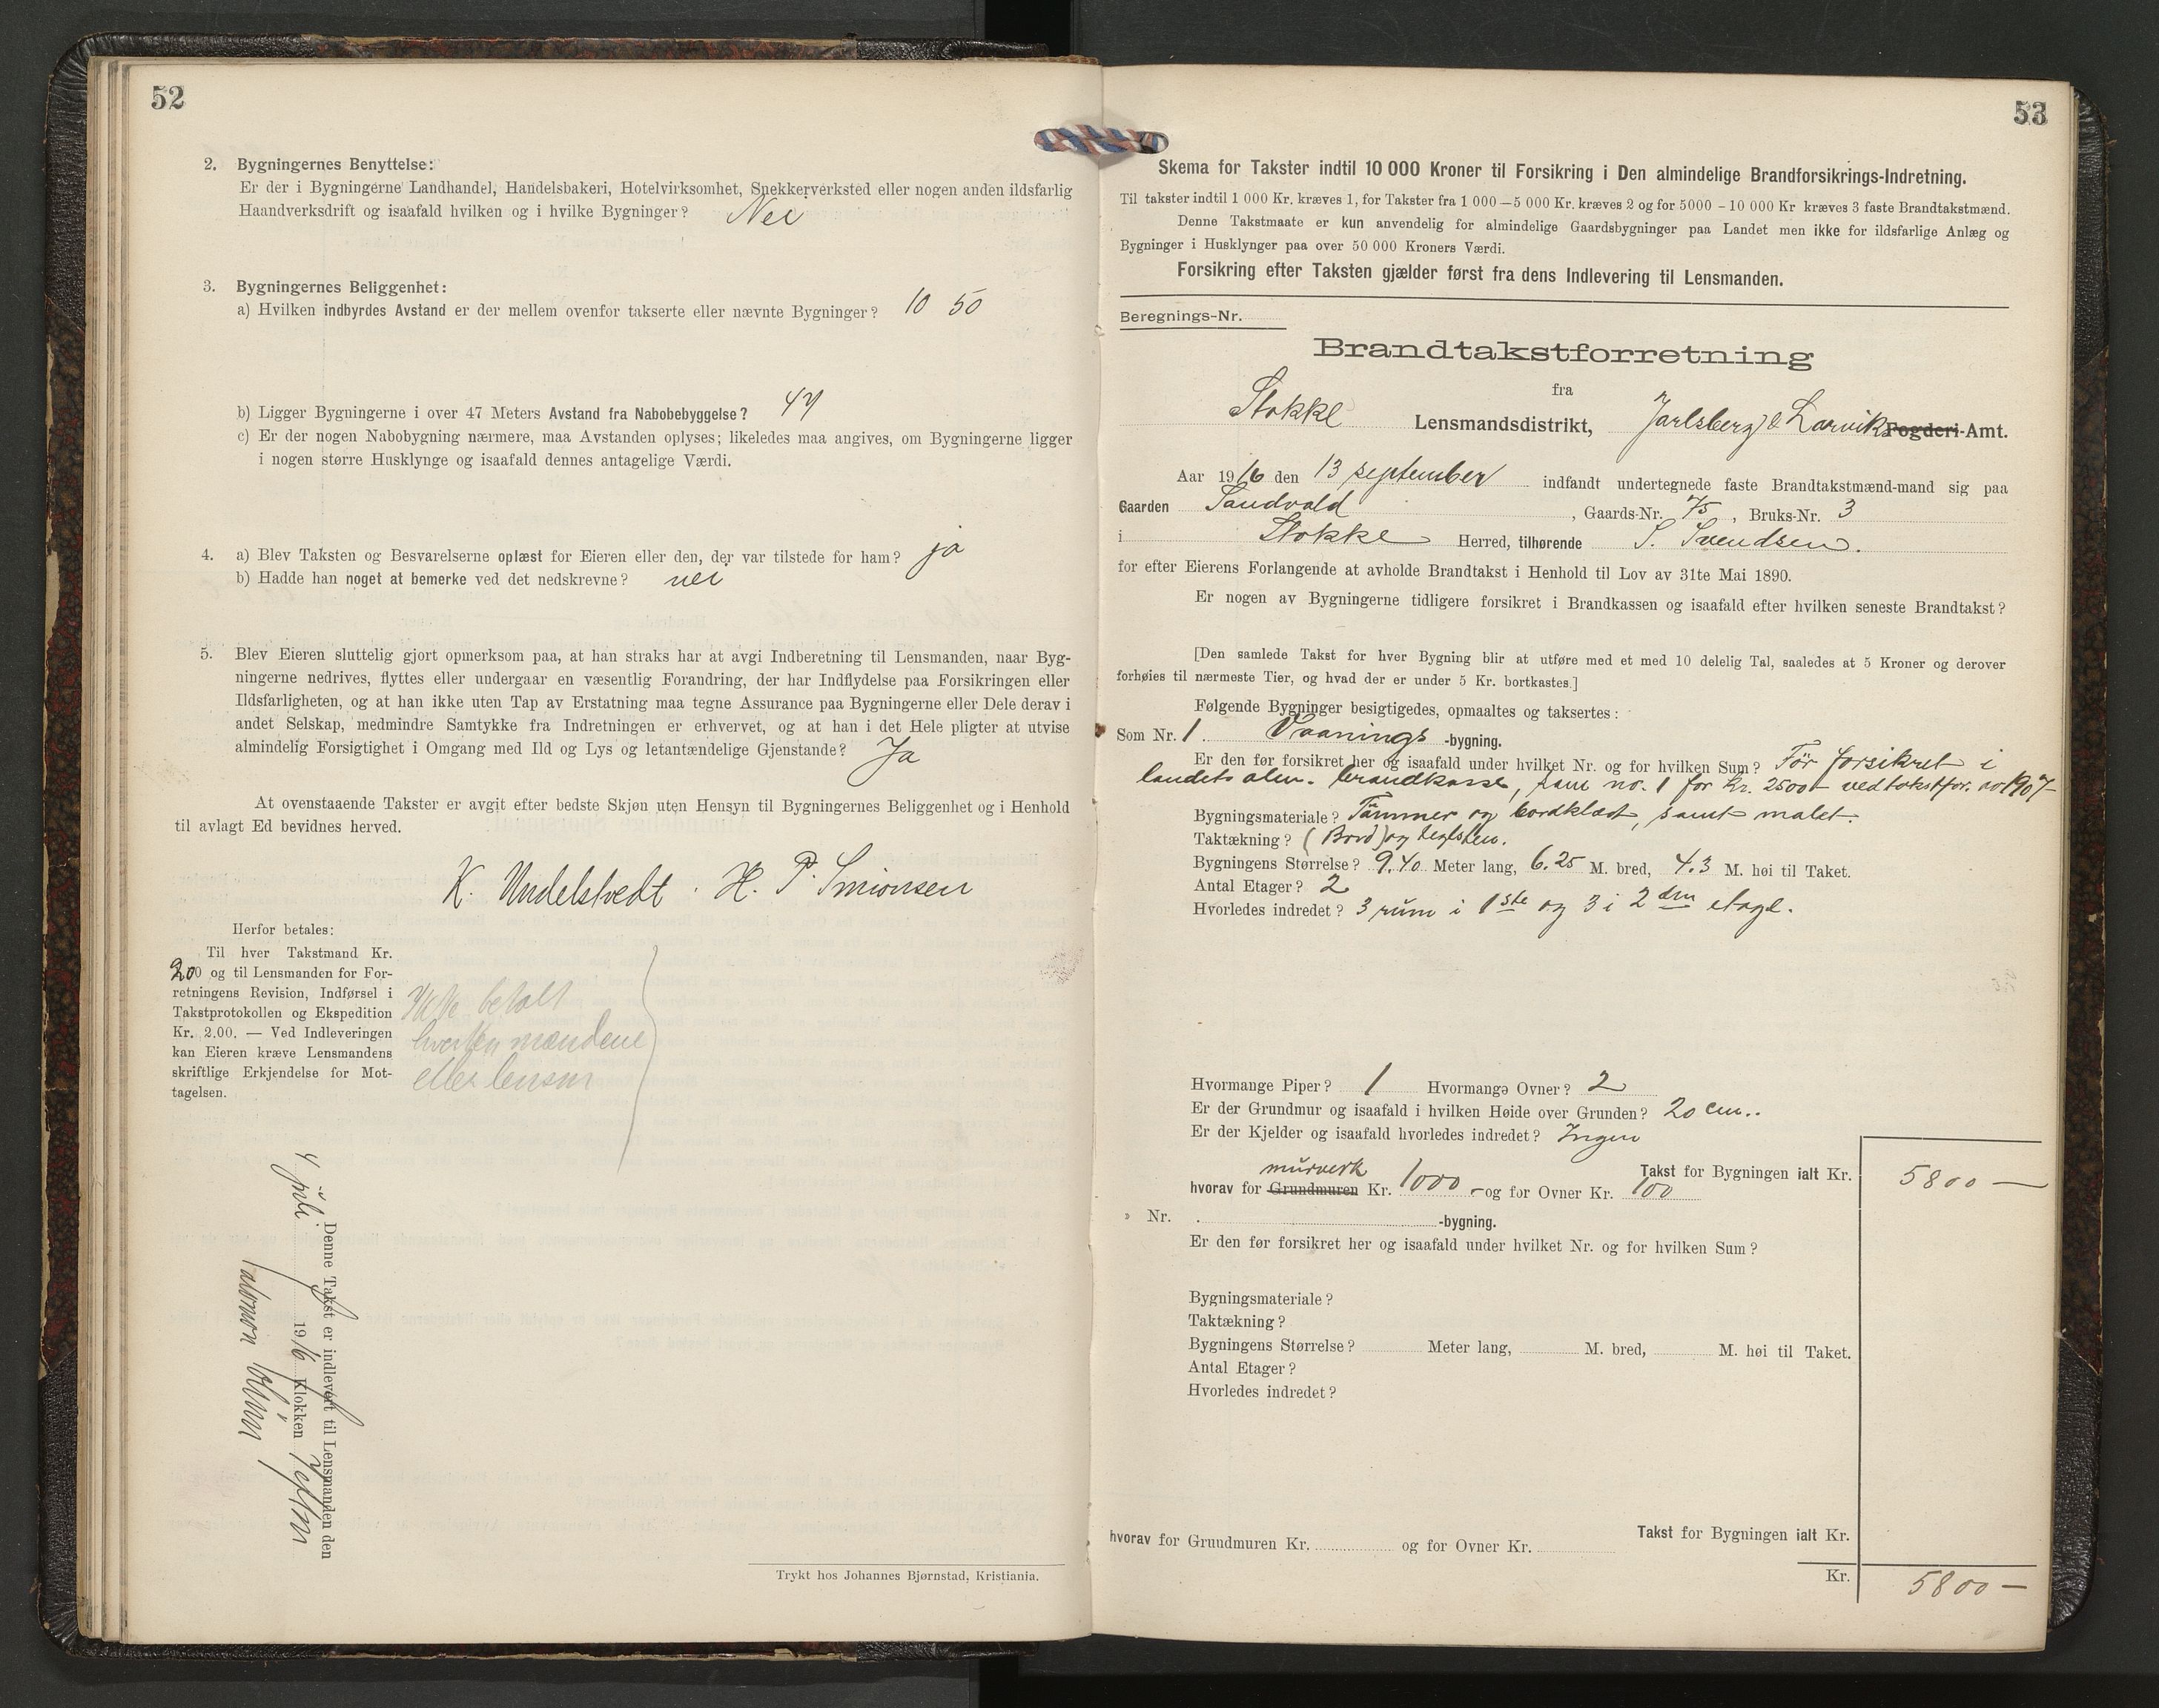 52
2. Bygningernes Benyttelse:
Er der i Bygningerne Landhandel, Handelsbakeri, Hotelvirksomhet, Snekkerverksted eller nogen anden ildsfarlig
Haandverksdrift og isaafald hvilken og i hvilke Bygninger? Nei
3. Bygningernes Beliggenhet:
a) Hvilken indbyrdes Avstand er der mellem ovenfor takserte eller nævnte Bygninger? 10 50
b) Ligger Bygningerne i over 47 Meters Avstand fra Nabobebyggelse? 47
c) Er der nogen Nabobygning nærmere, maa Avstanden oplyses; likeledes maa angives, om Bygningerne ligger
i nogen større Husklynge og isaafald dennes antagelige Værdi.
4. a) Blev Taksten og Besvarelserne oplæst for Eieren eller den, der var tilstede for ham? ja
b) Hadde han noget at bemerke ved det nedskrevne? nei
5. Blev Eieren sluttelig gjort opmerksom paa, at han straks har at avgi Indberetning til Lensmanden, naar Byg-
ningerne nedrives, flyttes eller undergaar en væsentlig Forandring, der har Indflydelse paa Forsikringen eller
Ildsfarligheten, og at han ikke uten Tap av Erstatning maa tegne Assurance paa Bygningerne eller Dele derav i
andet Selskap, medmindre Samtykke fra Indretningen er erhvervet, og at han i det Hele pligter at utvise
almindelig Forsigtighet i Omgang med Ild og Lys og letantændelige Gjenstande? Ja
At ovenstaaende Takster er avgit efter bedste Skjøn uten Hensyn til Bygningernes Beliggenhet og i Henhold
til avlagt Ed bevidnes herved.
K. Undelstvedt. H. P. Simonsen
Herfor betales:
Til hver Takstmand Kr.
200 og til Lensmanden for For-
retningens Revision, Indførsel i
Takstprotokollen og Ekspedition
Kr. 2.00. — Ved Indleveringen
kan Eieren kræve Lensmandens
skriftlige Erkjendelse for Mot-
tagelsen.
Ikke betalt
hverken mændene
eller lensm
Denne Takst er indlevert til Lensmanden den
4 juli 1916 Klokken 7 eftm
Trykt hos Johannes Bjørnstad, Kristiania.
53
Skema for Takster indtil 10 000 Kroner til Forsikring i Den almindelige Brandforsikrings-Indretning.
Til takster indtil 1 000 Kr. kræves 1, for Takster fra 1 000—5 000 Kr. kræves 2 og for 5000 – 10 000 Kr kræves 3 faste Brandtakstmænd.
Denne Takstmaate er kun anvendelig for almindelige Gaardsbygninger paa Landet men ikke for ildsfarlige Anlæg og
Bygninger i Husklynger paa over 50 000 Kroners Værdi.
Forsikring efter Taksten gjælder først fra dens Indlevering til Lensmanden.
Beregnings-Nr.
Brandtakstforretning
fra
Stokke Lensmandsdistrikt, Jarlsberg & Larviks Fogderi-Amt.
Aar 1916 den 13 september indfandt undertegnede faste Brandtakstmænd-mand sig paa
Gaarden Sandvold, Gaards-Nr. 75, Bruks-Nr. 3
i Stokke Herred, tilhørende S. Svendsen.
for efter Eierens Forlangende at avholde Brandtakst i Henhold til Lov av 31te Mai 1890.
Er nogen av Bygningerne tidligere forsikret i Brandkassen og isaafald efter hvilken seneste Brandtakst?
[Den samlede Takst for hver Bygning blir at utføre med et med 10 delelig Tal, saaledes at 5 Kroner og derover
forhøies til nærmeste Tier, og hvad der er under 5 Kr. bortkastes.]
Følgende Bygninger besigtigedes, opmaaltes og taksertes:
Som Nr. 1 Vaanings-bygning.
Er den før forsikret her og isaafald under hvilket Nr. og for hvilken Sum? Før forsikret i
landets alm. brandkasse, som no. 1 for kr. 2500 – ved takstfor. av 1907–
Bygningsmateriale? Tømmer og bordklædt, samt malet.
Taktækning? (Bord) og teglsten.
Bygningens Størrelse? 9.40 Meter lang, 6.25 M. bred, 4.3 M. høi til Taket.
Antal Etager? 2
Hvorledes indredet? 3 rum i 1ste og 3 i 2den etage.
Hvormange Piper? 1 Hvormange Ovner? 2
Er der Grundmur og isaafald i hvilken Høide over Grunden? 20 cm..
Er der Kjelder og isaafald hvorledes indredet? Ingen
Takst for Bygningen ialt Kr. 5800 —
murverk
hvorav for Grundmuren Kr. 1000 – og for Ovner Kr. 100
» Nr. -bygning.
Er den før forsikret her og isaafald under hvilket Nr. og for hvilken Sum?
Bygningsmateriale?
Taktækning?
Bygningens Størrelse? Meter lang, M. bred, M. høi til Taket.
Antal Etager?
Hvorledes indredet?
Takst for Bygningen ialt Kr.
hvorav for Grundmuren Kr. og for Ovner Kr.
Kr. 5800 —